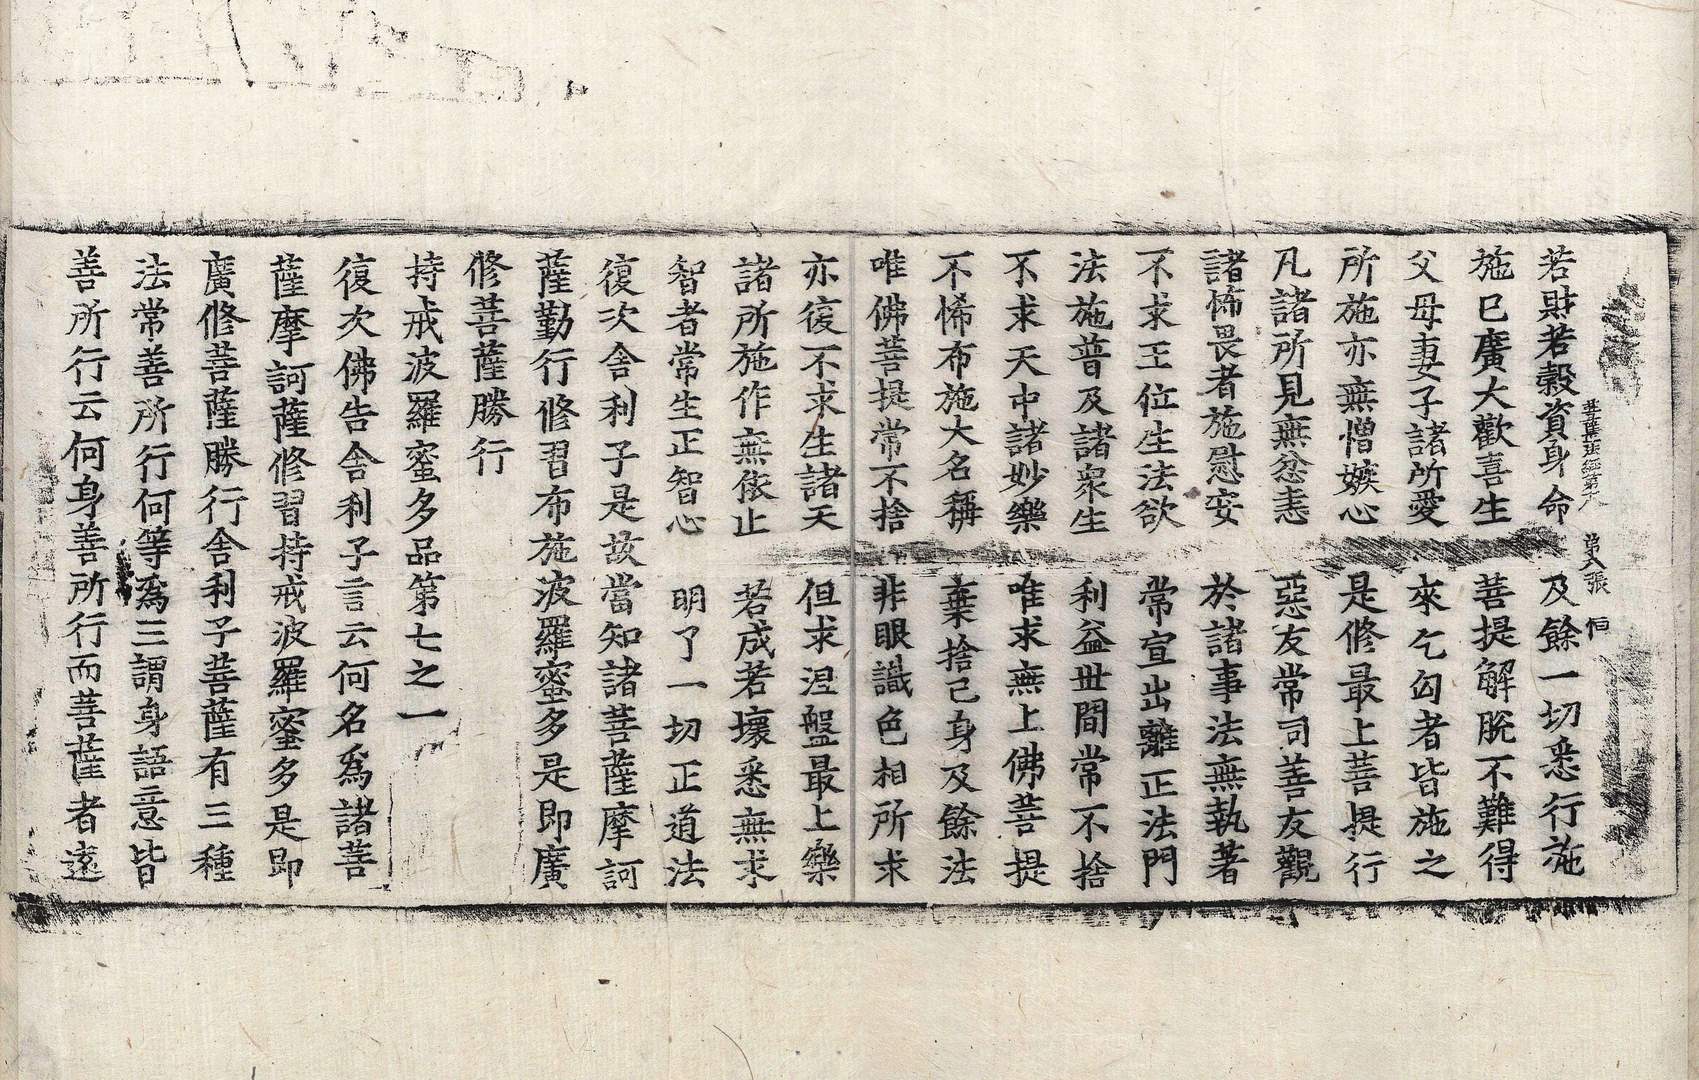 菩薩藏經第九 第八張 恒
若財若穀資身命 及餘一切悉行施
施已廣大歡喜生 菩提解脫不難得
父母妻子諸所愛 來乞匃者皆施之
所施亦無憎嫉心 是修最上菩提行
凡諸所見無忿恚 惡友常司善友觀
諸怖畏者施慰安 於諸事法無執著
不求王位生法欲 常宣出離正法門
法施普及諸衆生 利益世間常不捨
不求天中諸妙樂 唯求無上佛菩提
不悕布施大名稱 棄捨己身及餘法
唯佛菩提常不捨 非眼識色相所求
亦復不求生諸天 但求涅盤最上樂
諸所施作無依止 若成若壞悉無求
智者常生正智心 明了一切正道法
復次舍利子是故當知諸菩薩摩訶
薩勤行修習布施波羅蜜多是即廣
修菩薩勝行
持戒波羅蜜多品第七之一
復次佛告舍利子言云何名爲諸菩
薩摩訶薩修習持戒波羅蜜多是即
廣修菩薩勝行舍利子菩薩有三種
法常善所行何等爲三謂身語意皆
善所行云何身善所行而菩薩者遠